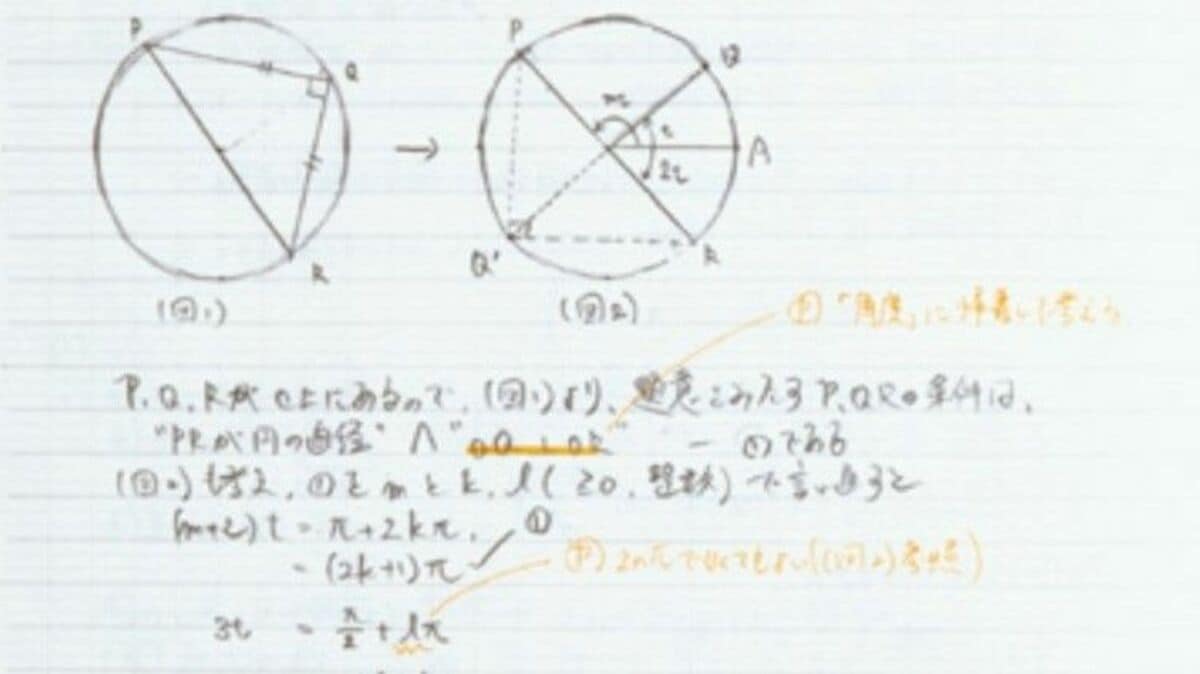 P
Q
R
(図1)
→
P
Q
A
mt
t
2t
Q'
R
(図2)
「角度」に帰着して考えよう
P, Q, RがC上にあるので, (図1)より, 題意をみたすP,QRの条件は,
"PRが円の直径" ∧ " ⊥ " ― ①である
(図2)も考え, ①をmとk, l(≧0, 整数)で言い直すと
(m+2)t = π+2kπ,
= (2k+1)π ①
2nπでなくてもよい((図2)参照)
3t = π/2 + lπ